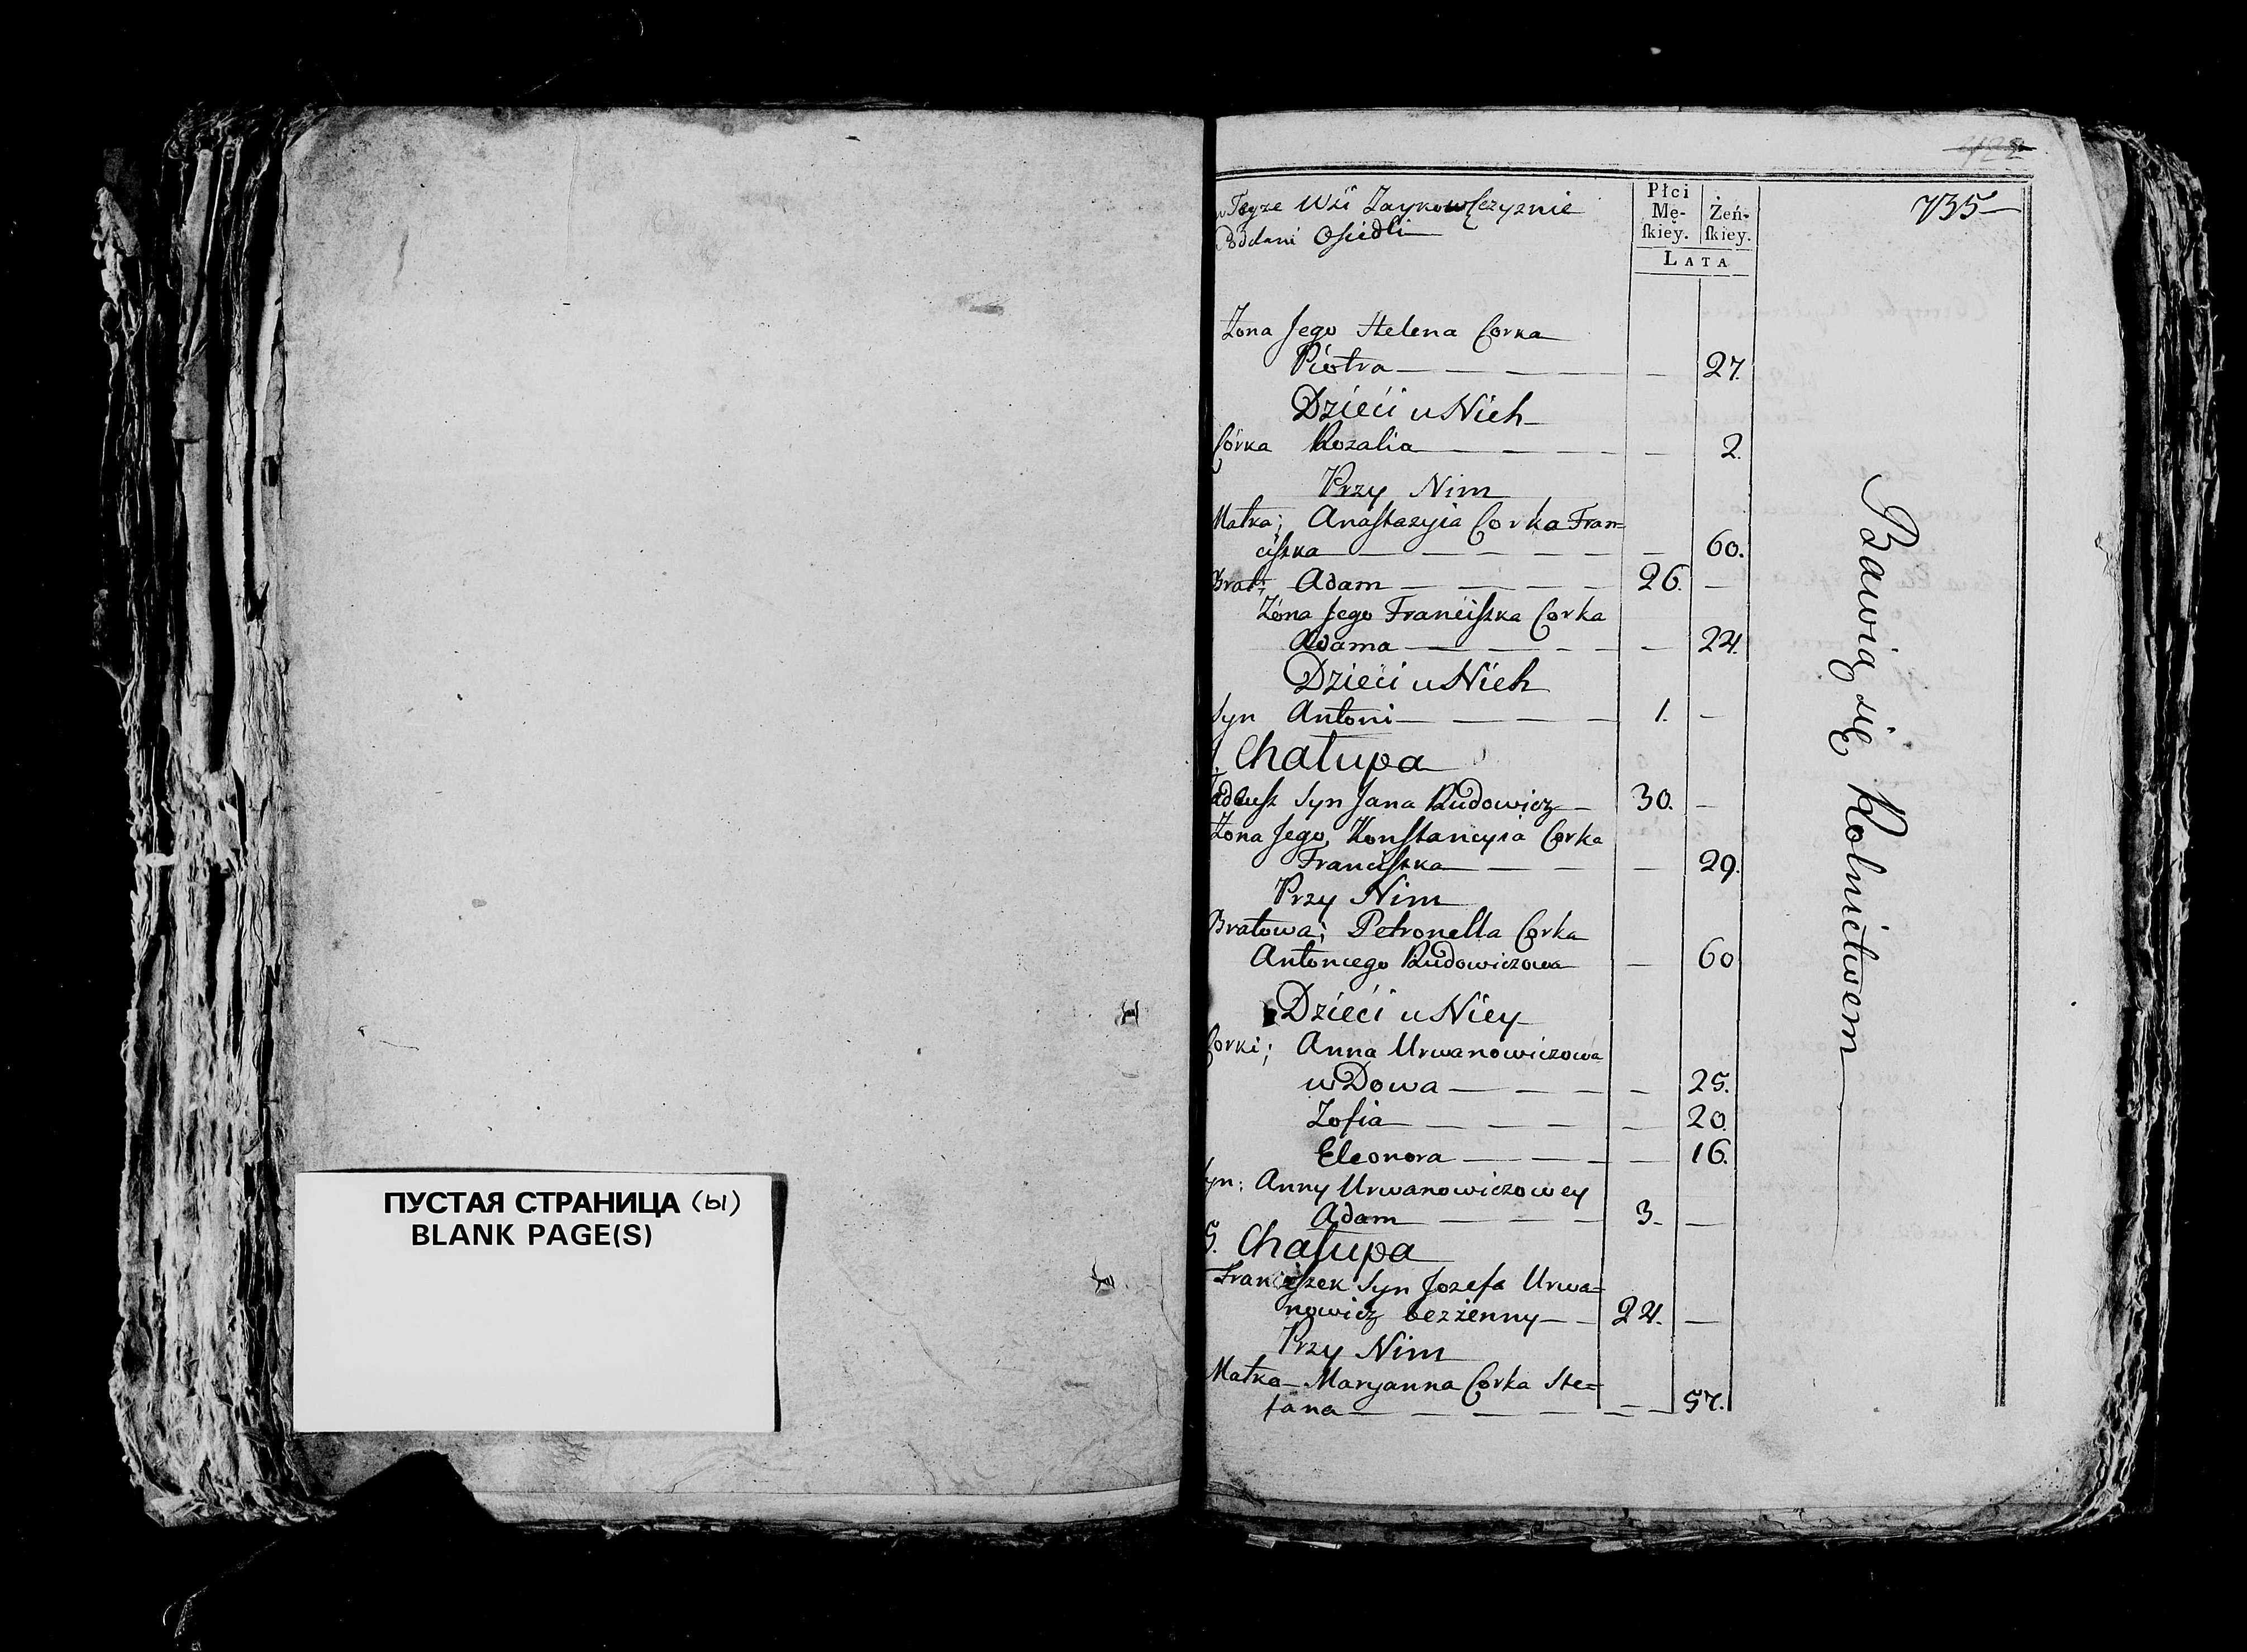 ПУСТАЯ СТРАНИЦА (ы)
BLANK PAGE(S)
735
w Teyże Wsi Zaykowſzczyznie
Poddani Osiedli
Płci
Mę-
ſkiey.
Żeń-
ſkiey.
LATA
Żona Jego Helena Corka
Piotra — 27.
Dzieci u Nich
Córka Rozalia — 2.
Przy Nim
Matka; Anaſtazyia Corka Fran=
ciſzka — 60.
Brat; Adam — 26. —
Żona Jego Franciſzka Corka
Adama — 24.
Dzieci u Nich
Syn Antoni — 1. —
Chałupa
Tadeuſz Syn Jana Rudowicz — 30. —
Żona Jego, Konſtancyia Corka
Franciſzka — 29.
Przy Nim
Bratowa; Petronella Corka
Antoniego Rudowiczowa — 60
Dzieci u Niey
Corki; Anna Urwanowiczowa
wDowa — 25.
Zofia — 20.
Eleonora — 16.
Syn; Anny Urwanowiczowey
Adam — 3. —
5. Chałupa
Franciſzek Syn Jozefa Urwa=
nowicz bezżenny — 24. —
Przy Nim
Matka Maryanna Corka Ste=
fana — 57.
Bawią się Rolnictwem